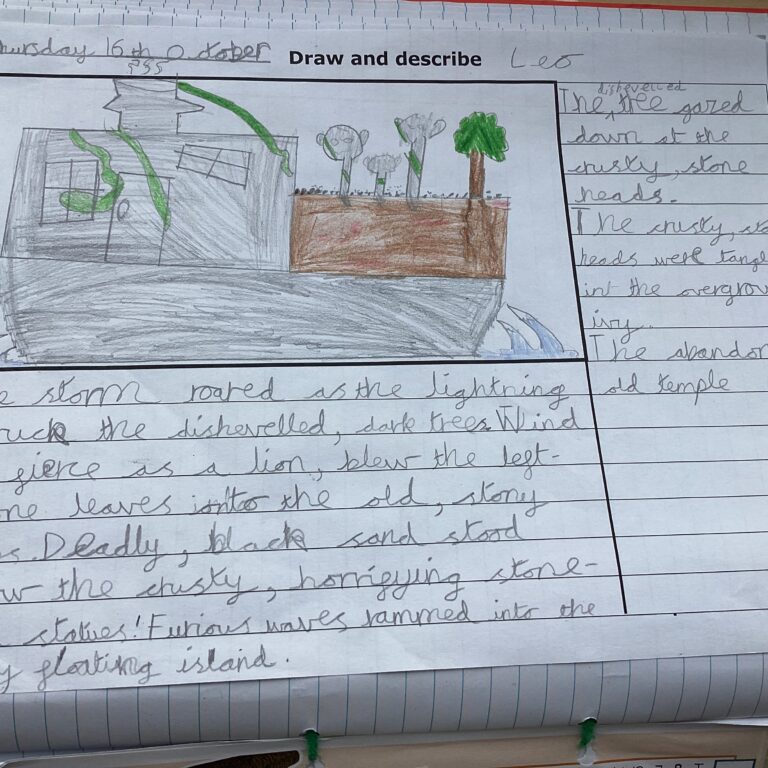 hursday 16th October Draw and describe Leo
dishevelled
The, tree gazed
down at the
crusty, stone
heads.
The crusty, sto
heads were tangl
int the overgrow
ivy.
The abandon
old temple
e storm roared as the lightning
ruck the dishevelled, dark trees. Wind
fierce as a lion, blew the left-
ne leaves into the old, stony
s. Deadly, black sand stood
w the crusty, horrifying stone-
statues! Furious waves rammed into the
y floating island.